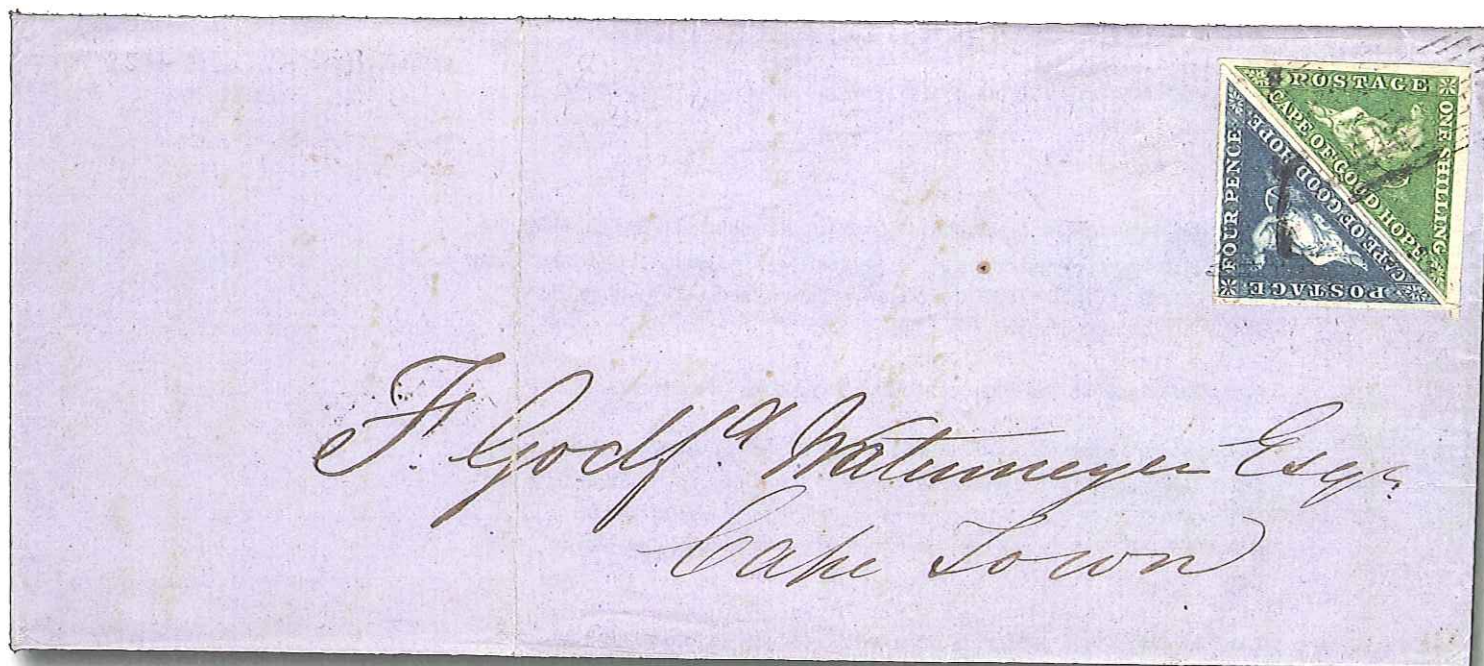 POSTAGE
ONE SHILLING
CAPE OF GOOD HOPE
FOUR PENCE
CAPE OF GOOD HOPE
POSTAGE
F. Godf.d Watermeyer Esqr.
Cape Town